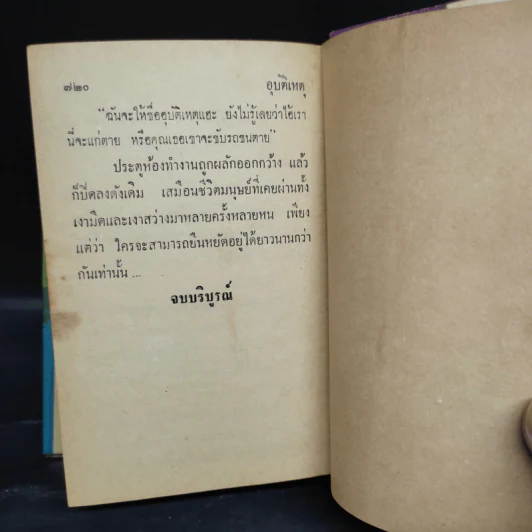 ๗๒๐ อุบัติเหตุ
"ฉันจะให้ชื่ออุบัติเหตุแฮะ ยังไม่รู้เลยว่าไอ้เรา
นี่จะแก่ตาย หรือคุณเธอเขาจะขับรถชนตาย"
ประตูห้องทำงานถูกผลักออกกว้าง แล้ว
ก็ปิดลงดังเดิม เสมือนชีวิตมนุษย์ที่เคยผ่านทั้ง
เงามืดและเงาสว่างมาหลายครั้งหลายหน เพียง
แต่ว่า ใครจะสามารถยืนหยัดอยู่ได้ยาวนานกว่า
กันเท่านั้น ...
จบบริบูรณ์